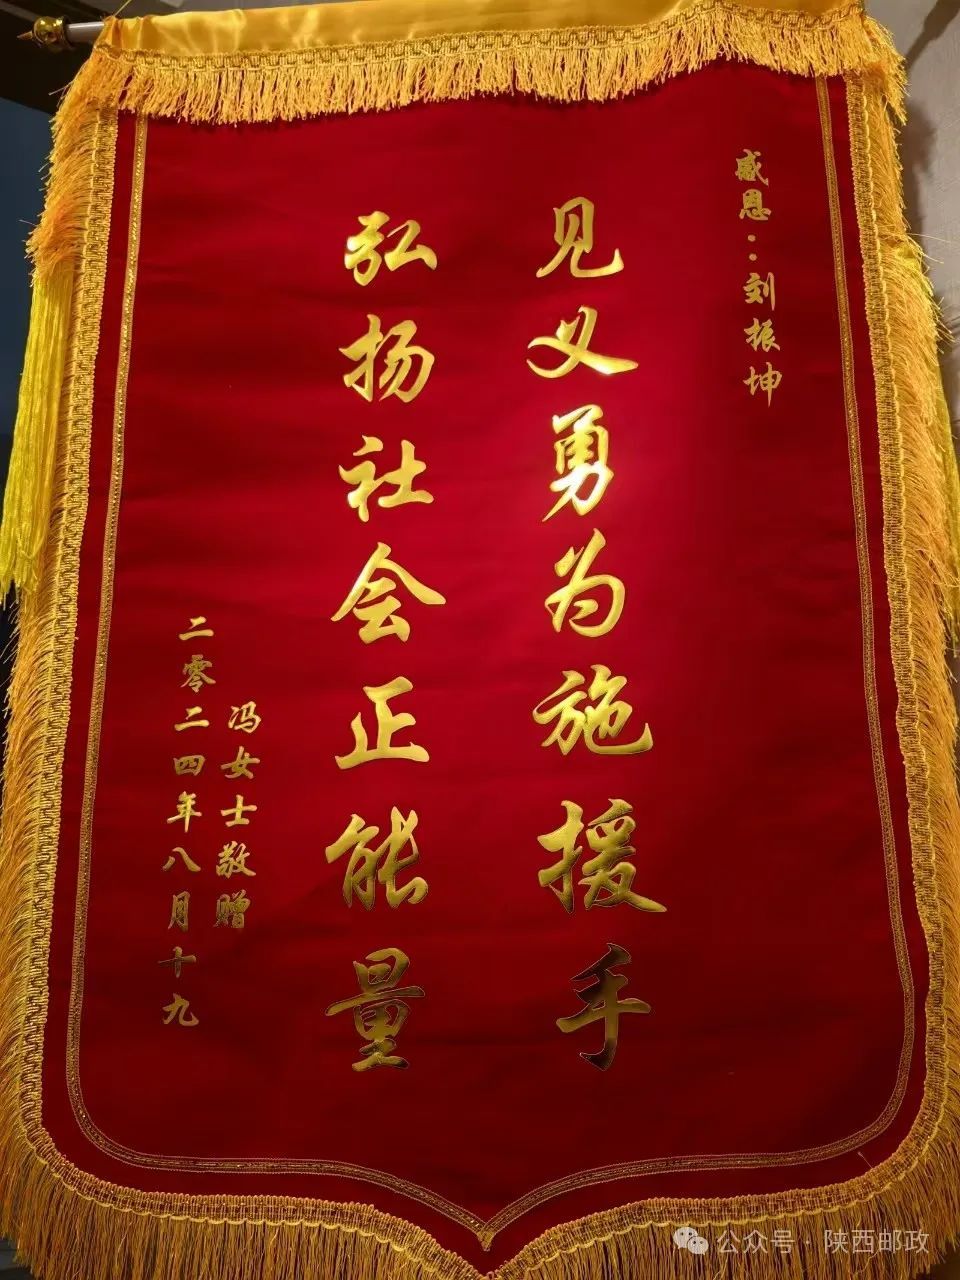 感恩：刘振坤
见义勇为施援手
弘扬社会正能量
冯女士敬赠
二零二四年八月十九
公众号·陕西邮政